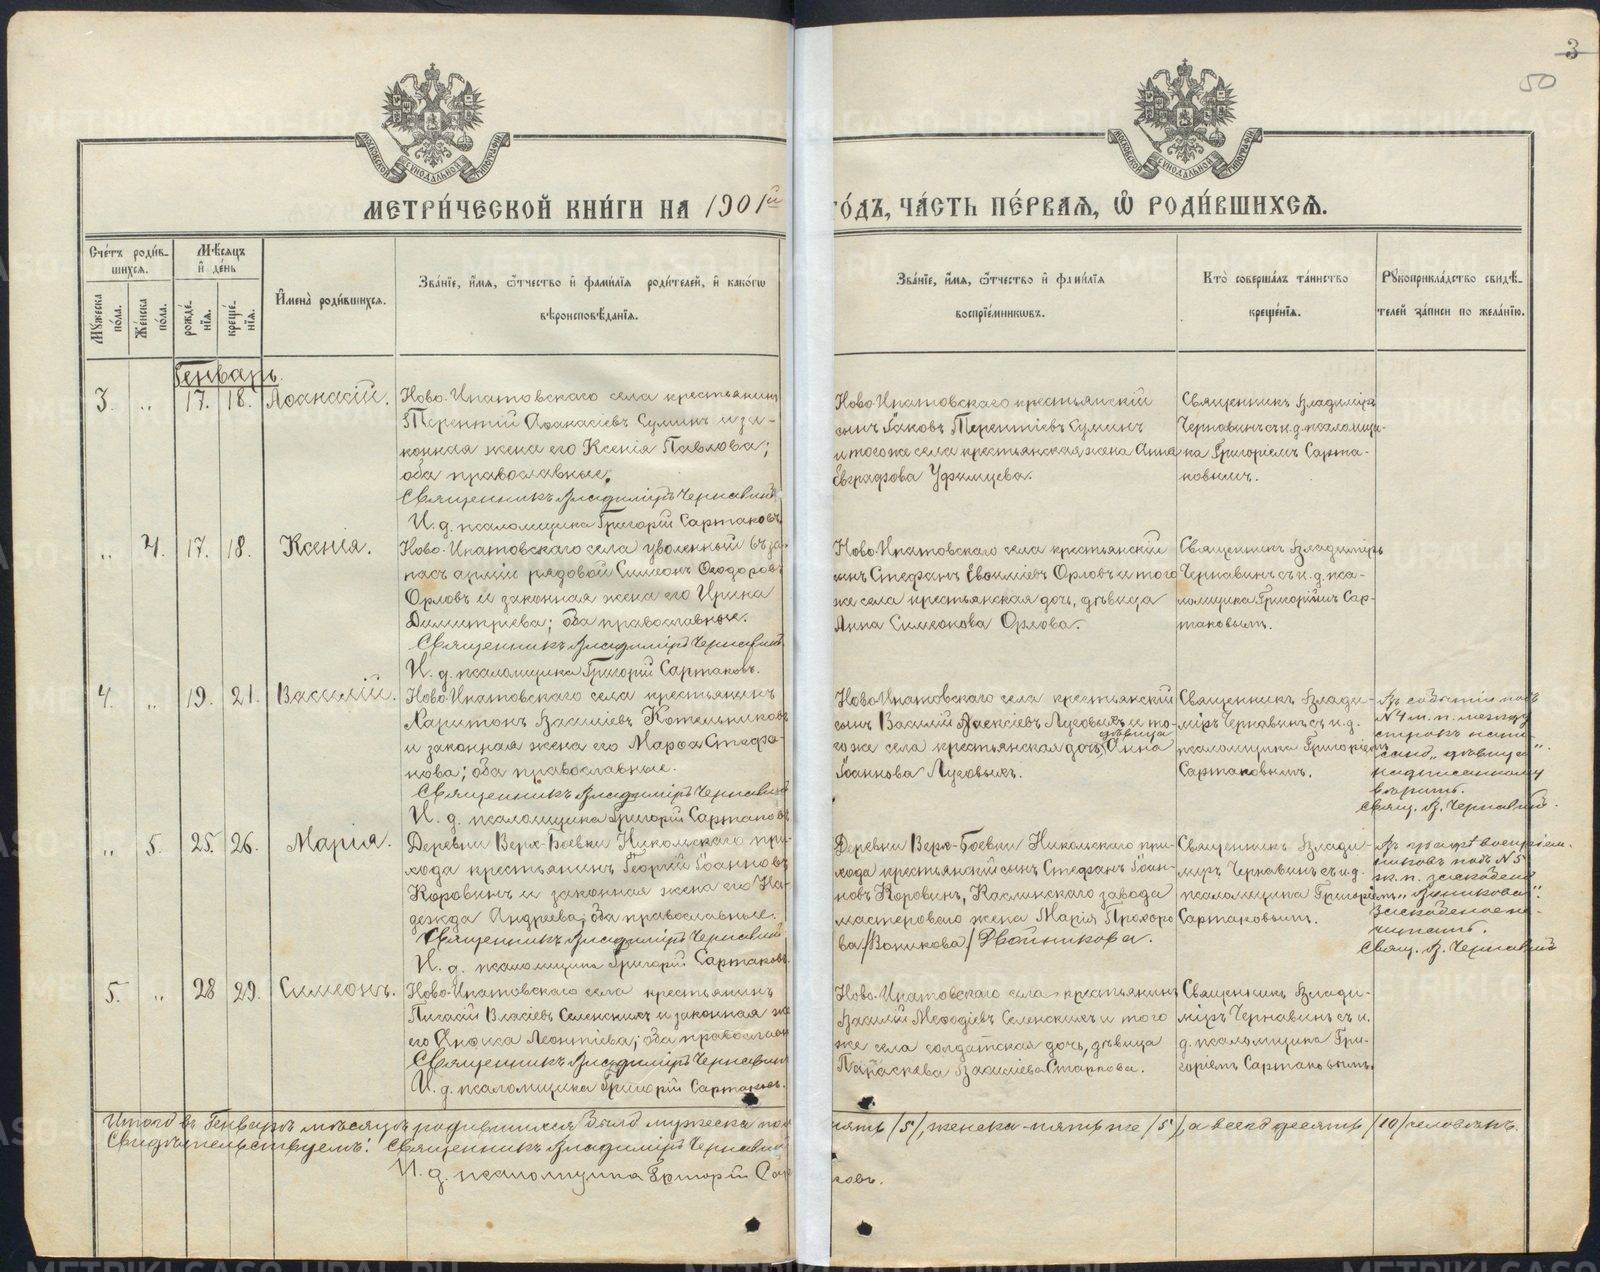 3
50
МОСКОВСКОЙ СѴНОДАЛЬНОЙ ТИПОГРАФІИ
МОСКОВСКОЙ СѴНОДАЛЬНОЙ ТИПОГРАФІИ
МЕТРИ́ЧЕСКОЙ КНИ́ГИ НА 1901й
ГО́ДЪ, ЧА́СТЬ ПЕ́РВАЯ, Ѽ РОДИ́ВШИХСЯ.
Сче́тъ роди́в-
шихся.
Мѣ́сяцъ
и҆ де́нь
Мꙋ́жеска по́ла.
Же́нска по́ла.
рожде́нїя.
креще́нїя.
И҆мена̀ роди́вшихся.
Зва́нїе, и҆́мя, ѻ҆́тчество и҆ фами́лїя роди́телей, и҆ како́гѡ
вѣроисповѣ́данїя.
Зва́нїе, и҆́мя, ѻ҆́тчество и҆ фами́лїя
воспрїе́мниковъ.
Кто̀ соверша́лъ та́инство
креще́нїя.
Рꙋкоприкла́дство свидѣ́-
телей за́писи по жела́нїю.
Генварь.
3. „ 17. 18. Аѳанасій.
Ново-Ипатовскаго села крестьянинъ
Терентій Аѳанасіевъ Суминъ и за-
конная жена его Ксенія Павлова;
оба православные.
Священникъ Владиміръ Чернавинъ
И. д. псаломщика Григорій Сартаковъ
Ново-Ипатовскаго крестьянскій
сынъ Іаковъ Терентіевъ Суминъ
и того же села крестьянская жена Анна
Евграфова Уфимцева.
Священникъ Владиміръ
Чернавинъ съ и. д. псаломщи-
ка Григоріемъ Сарта-
ковымъ.
„ 4. 17. 18. Ксенія.
Ново-Ипатовскаго села уволенный въ за-
пасъ арміи рядовой Симеонъ Ѳеодоровъ
Орловъ и законная жена его Ирина
Димитріева; оба православные.
Священникъ Владиміръ Чернавинъ
И. д. псаломщика Григорій Сартаковъ.
Ново-Ипатовскаго села крестьянскій
сынъ Стефанъ Евѳиміевъ Орловъ и того
же села крестьянская дочь, дѣвица
Анна Симеонова Орлова.
Священникъ Владиміръ
Чернавинъ съ и. д. пса-
ломщика Григоріемъ Сар-
таковымъ.
4. „ 19. 21. Василій.
Ново-Ипатовскаго села крестьянинъ
Харитонъ Василіевъ Котельниковъ
и законная жена его Марѳа Стефа-
нова; оба православные.
Священникъ Владиміръ Чернавинъ
И. д. псаломщика Григорій Сартаковъ
Ново-Ипатовскаго села крестьянскій
сынъ Василій Алексіевъ Луговыхъ и то-
го же села крестьянская дочь, дѣвица Анна
Іоаннова Луговыхъ.
Священникъ Влади-
міръ Чернавинъ съ и. д.
псаломщика Григоріемъ
Сартаковымъ.
Въ событіи подъ
№ 4 м. п. между
строкъ напи-
сано „дѣвица“.
надписанному
вѣрить.
Свящ. В. Чернавинъ.
„ 5. 25. 26. Марія.
Деревни Верх-Боевки Никольскаго при-
хода крестьянинъ Георгій Іоанновъ
Коровинъ и законная жена его На-
дежда Андреева; оба православные.
Священникъ Владиміръ Чернавинъ
И. д. псаломщика Григорій Сартаковъ
Деревни Верх-Боевки Никольскаго при-
хода крестьянскій сынъ Стефанъ Іоан-
новъ Коровинъ, Каслинскаго завода
мастероваго жена Марія Прохоро
ва /Воникова/ Двойникова.
Священникъ Влади-
міръ Чернавинъ съ и. д.
псаломщика Григоріемъ
Сартаковымъ.
Въ графѣ воспріем-
никовъ подъ № 5
ж. п. заскоблено
„Воникова“.
Заскобленое не
читать.
Свящ. В. Чернавинъ
5. „ 28 29. Симеонъ.
Ново-Ипатовскаго села крестьянинъ
Пигасій Власіевъ Селенскихъ и законная же
его Анѳиса Леонтіева; оба православн
Священникъ Владиміръ Чернавинъ
И. д. псаломщика Григорій Сартаковъ.
Ново-Ипатовскаго села крестьянинъ
Василій Меѳодіевъ Селенскихъ и того
же села солдатская дочь, дѣвица
Параскева Василіева Старкова.
Священникъ Влади-
міръ Чернавинъ съ и.
д. псаломщика Гри-
горіемъ Сартаковымъ.
Итого въ Генварѣ мѣсяцѣ родившихся было мужеска пола
пять /5/, женска-пять же /5/, а всего десять /10/ человѣкъ.
Свидѣтельствуемъ: Священникъ Владиміръ Чернавинъ
И. д. псаломщика Григорій Сар
ковъ.
METRIKI.GASO-URAL.RU